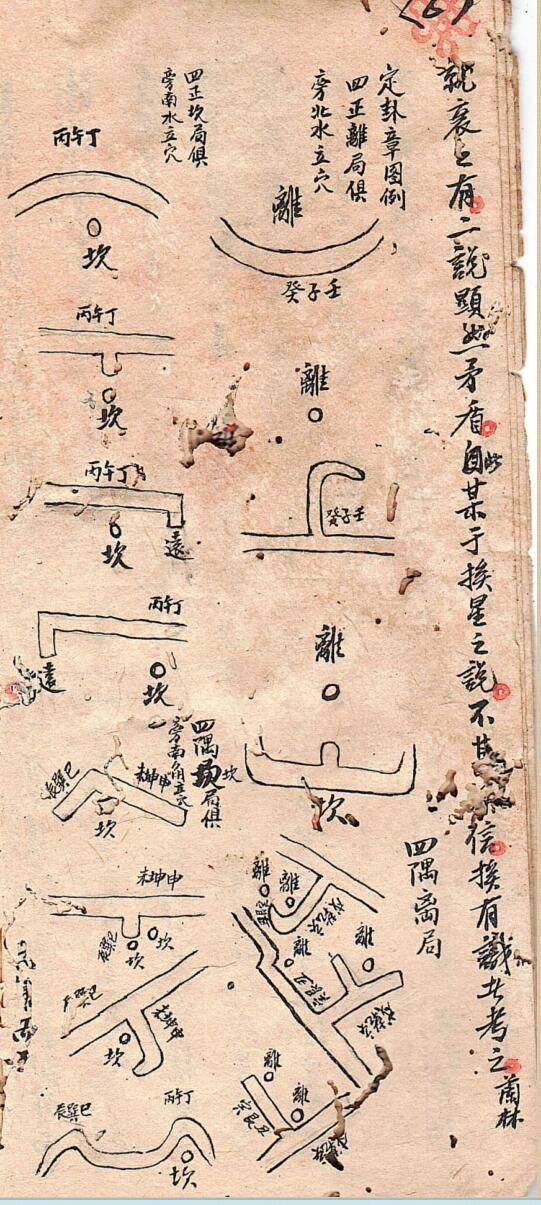 就裏上有二說顯然矛盾自某于挨星之說不甘信挨有識者考之
蘭林
定卦章图例
四正離局俱
旁北水立穴
離
癸子壬
離
癸子壬
離
坎
四隅离局
離
離
離
離
戌乾亥
離
離
丑艮
四正坎局俱
旁南水立穴
丙午丁
坎
丙午丁
坎
丙午丁
坎
遠
丙午丁
坎
遠
四隅坎局俱
旁南角立穴
辰巽巳
未坤申
坎
未坤申
辰巽巳
坎
坎
未坤申
坎
辰巽巳
丙午丁
坎